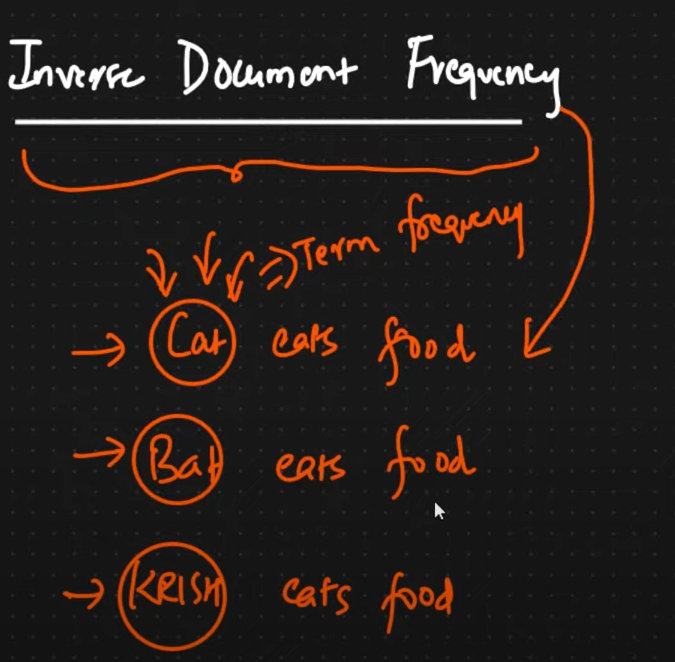 Inverse Document Frequency
⇒ Term frequency
→ Cat eats food
→ Bat eats food
→ KRISH eats food